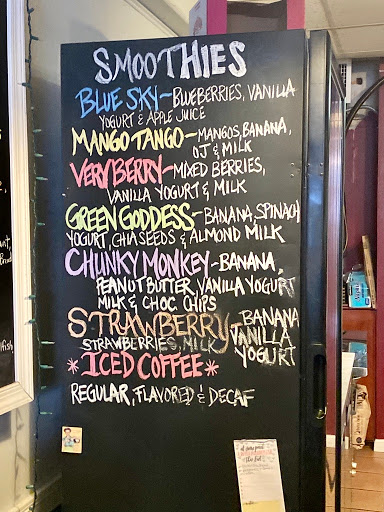 SMOOTHIES
BLUE SKY - BLUEBERRIES, VANILLA
YOGURT & APPLE JUICE
MANGO TANGO - MANGOS, BANANA,
OJ & MILK
VERY BERRY - MIXED BERRIES,
VANILLA YOGURT & MILK
GREEN GODDESS - BANANA, SPINACH
YOGURT, CHIA SEEDS & ALMOND MILK
CHUNKY MONKEY - BANANA,
PEANUT BUTTER, VANILLA YOGURT
MILK & CHOC. CHIPS
STRAWBERRY - BANANA
STRAWBERRIES, MILK, VANILLA
YOGURT
*ICED COFFEE*
REGULAR, FLAVORED & DECAF